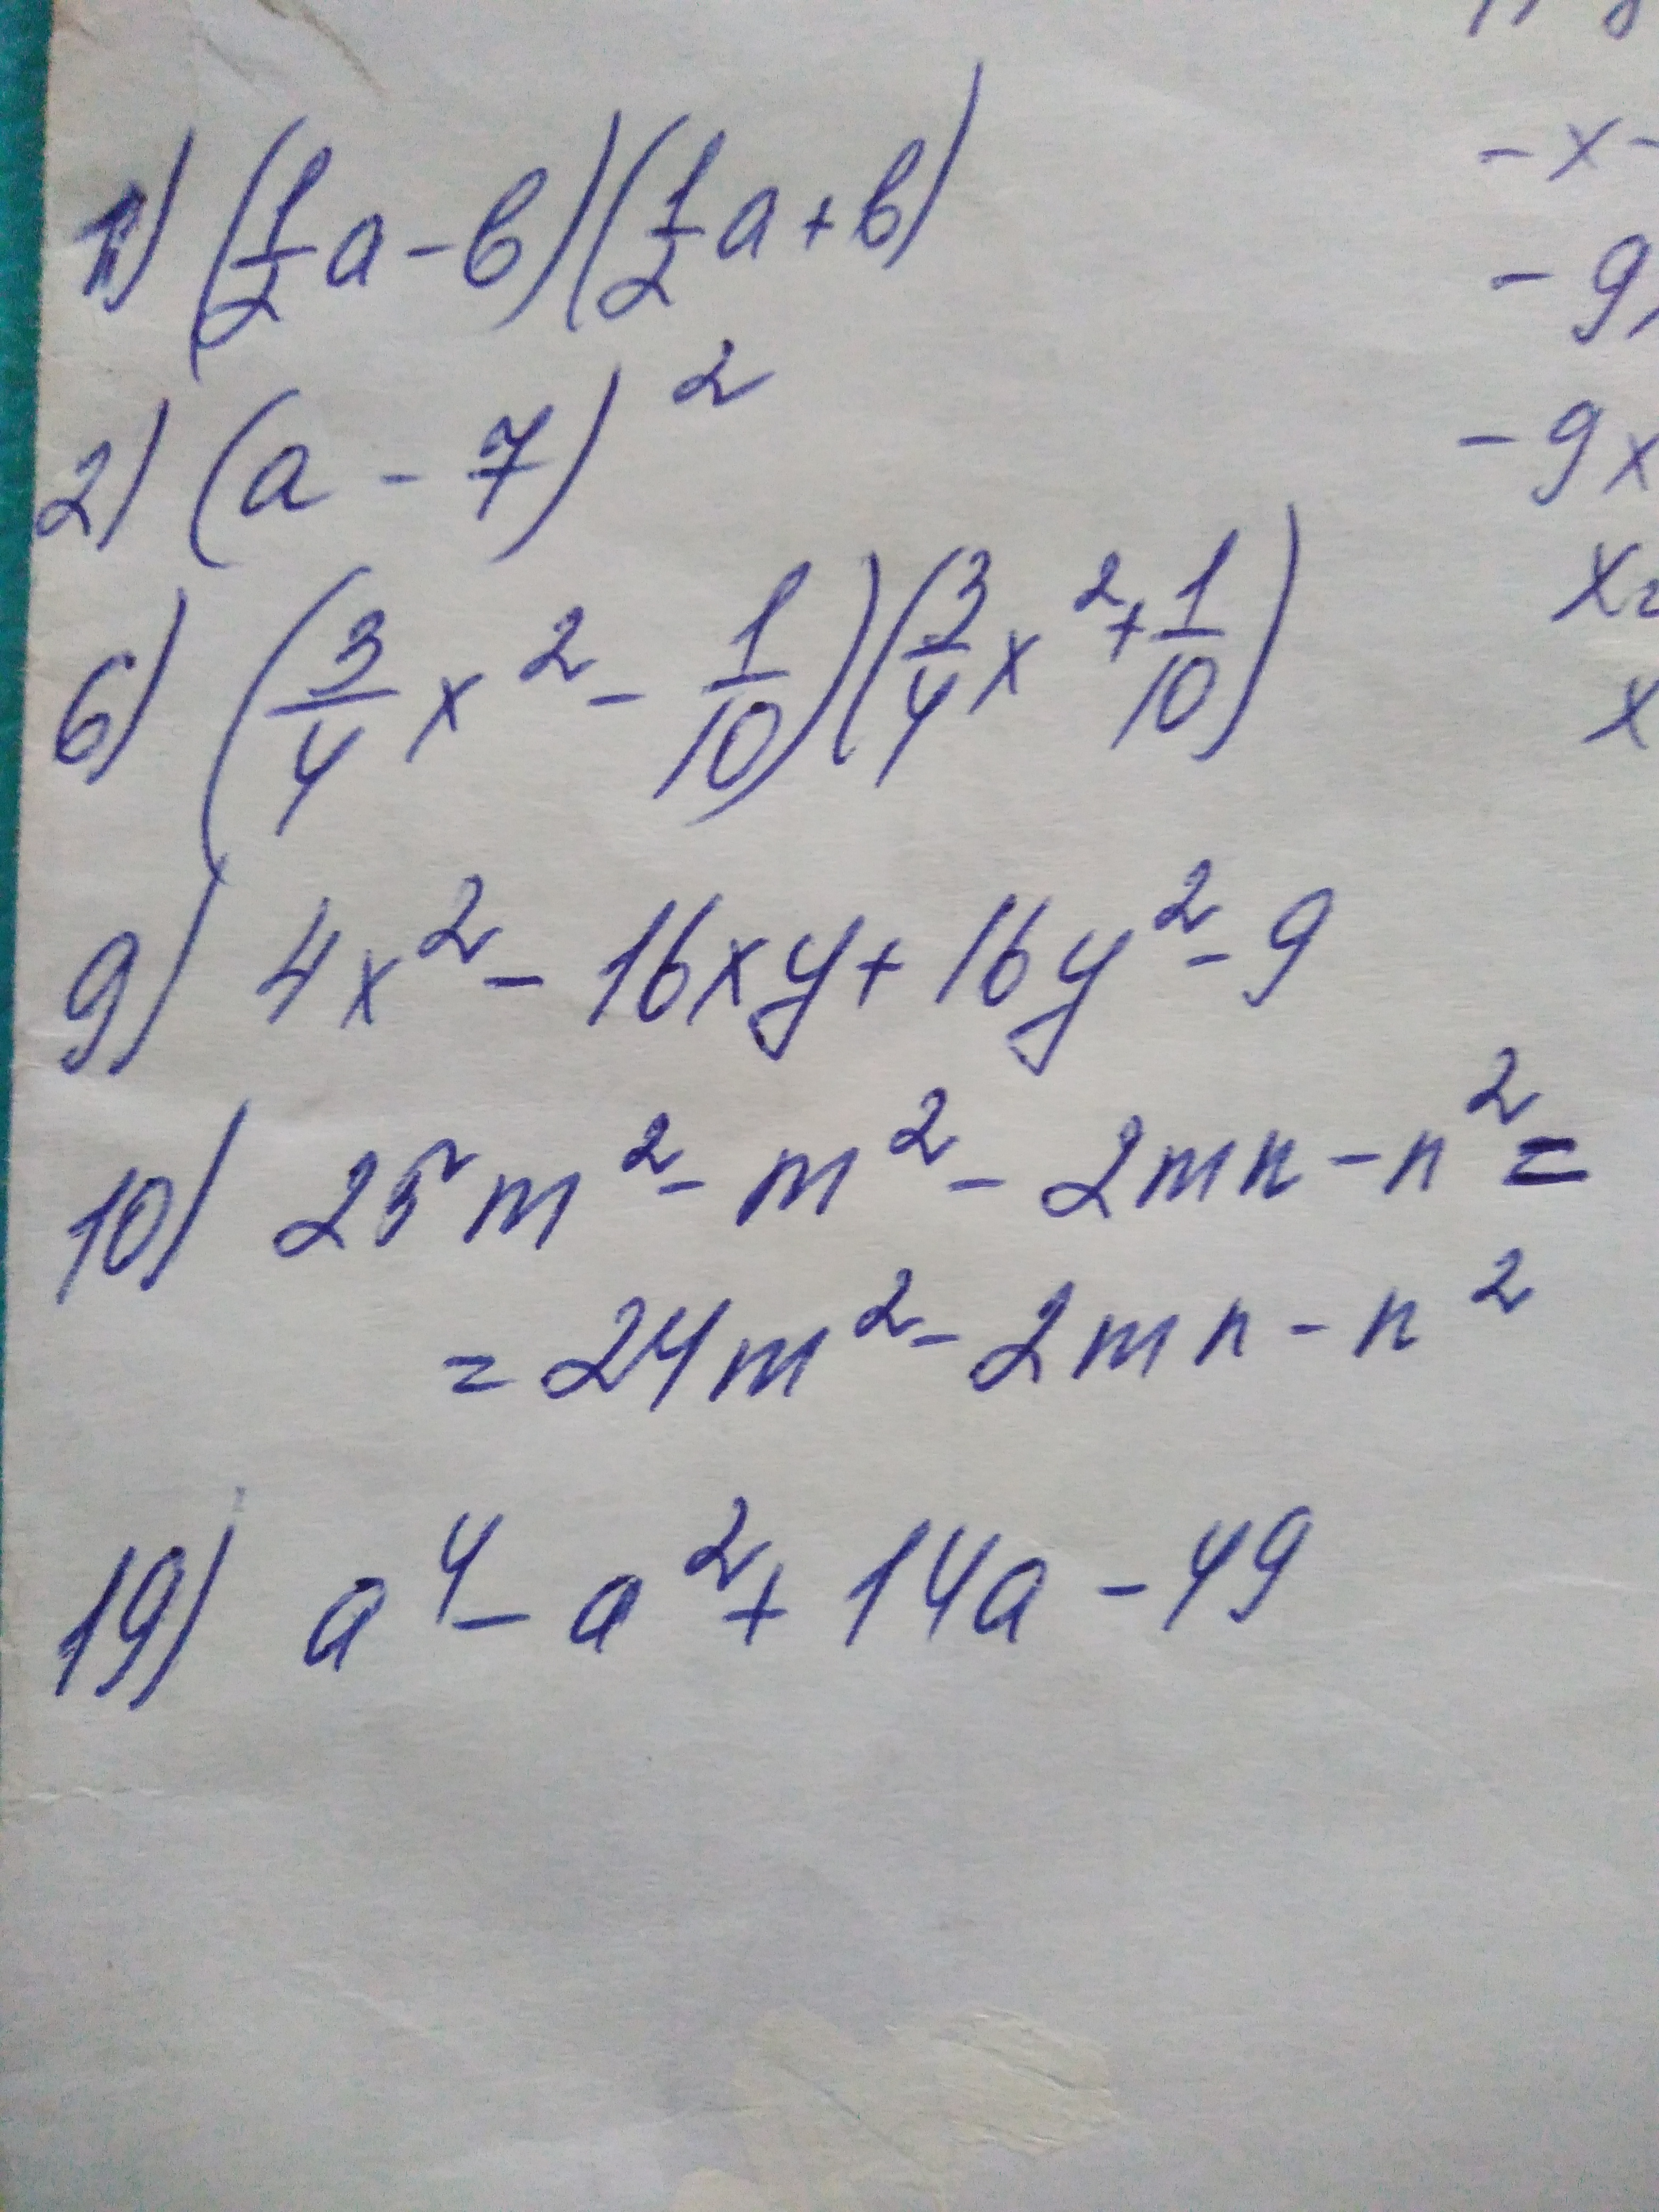 1) (1/2 a - b)(1/2 a + b)
2) (a - 7)²
6) (3/4 x² - 1/10)(3/4 x² + 1/10)
9) 4x² - 16xy + 16y² - 9
10) 25m² - m² - 2mn - n² =
= 24m² - 2mn - n²
19) a⁴ - a² + 14a - 49
- x -
- 9
- 9x
x
x